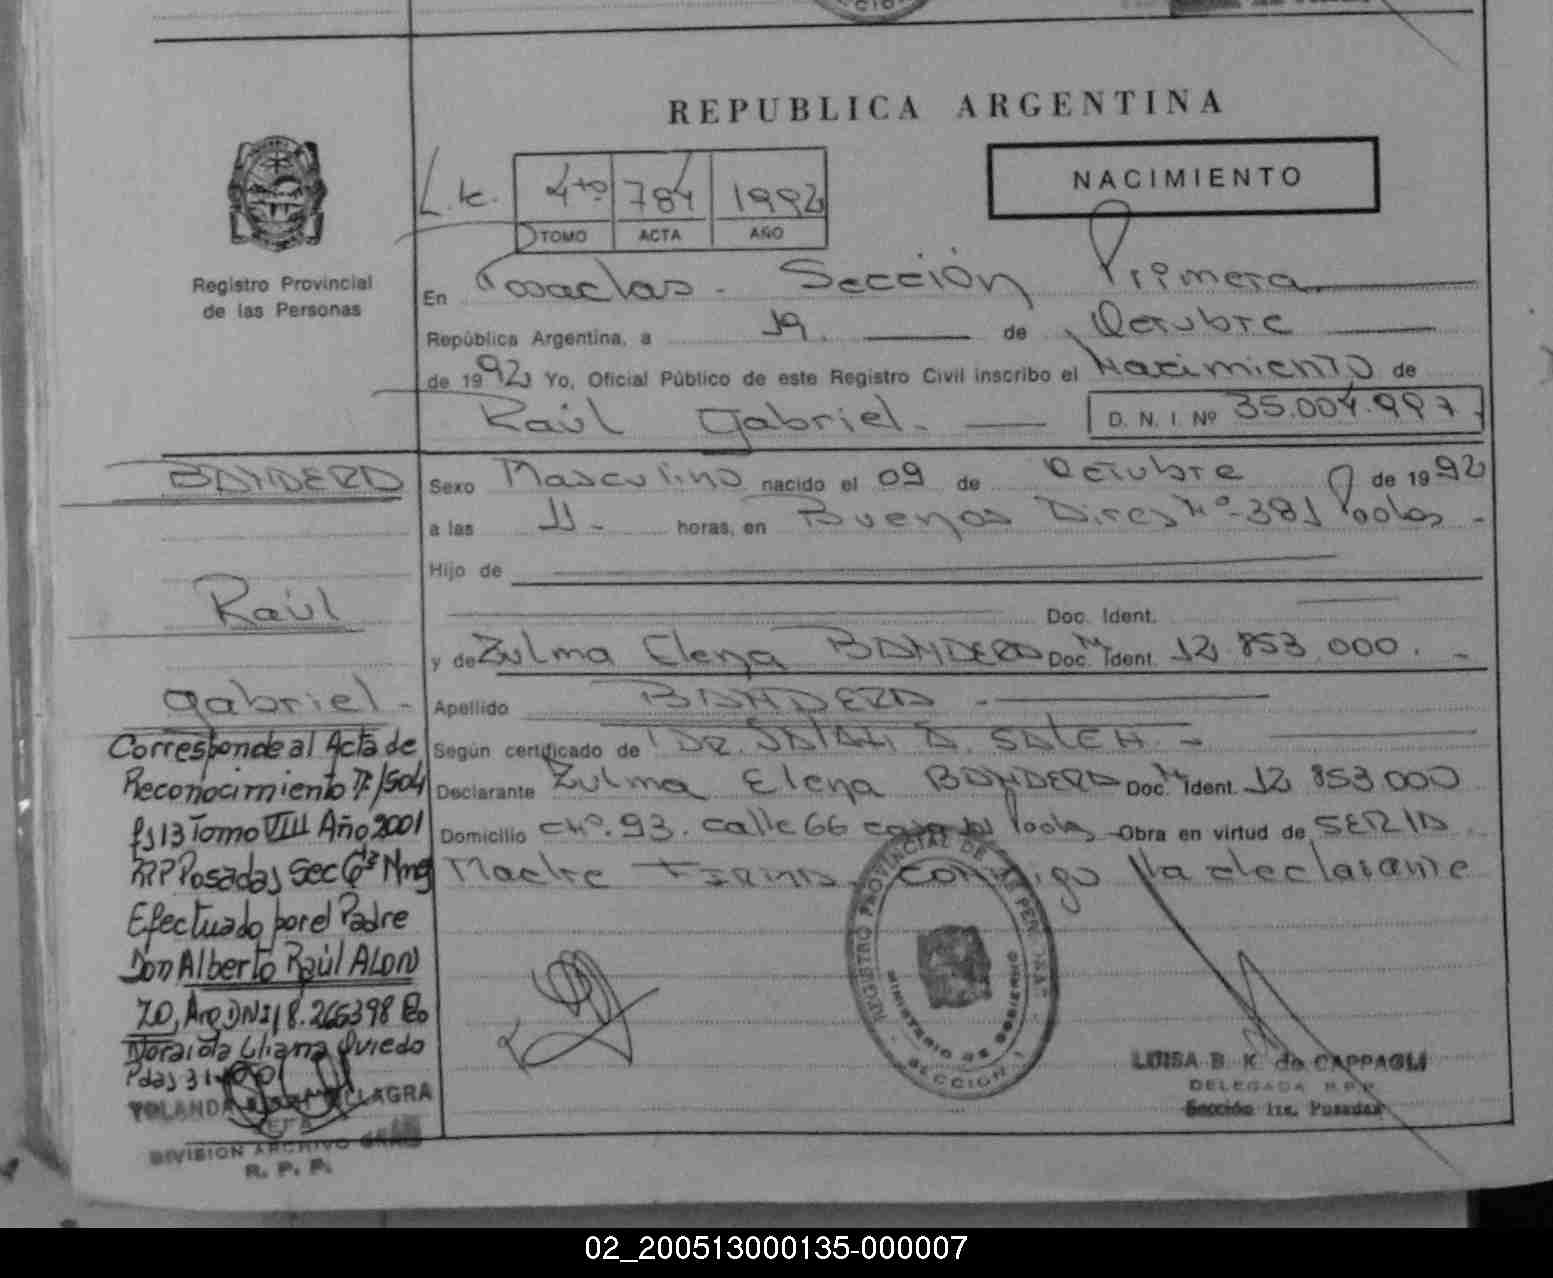 REPUBLICA ARGENTINA
NACIMIENTO
4to 784 1992
TOMO ACTA AÑO
Registro Provincial
de las Personas
En Posadas - Sección Primera
República Argentina, a 19 de Octubre
de 1992 Yo, Oficial Público de este Registro Civil inscribo el Nacimiento de
Raúl Gabriel. D. N. I. Nº 35.004.997
BANDERA
Sexo Masculino nacido el 09 de Octubre de 1992
a las 11 - horas, en Buenos Aires Nº 381 Pdas -
Hijo de
Raúl
Doc. Ident.
y de Zulma Elena BANDERA Doc. Ident. 12.853.000. -
Gabriel -
Apellido BANDERA -
Según certificado de DR. A. SALEH -
Declarante Zulma Elena BANDERA Doc. Ident. 12.853.000
Domicilio Ch º. 93. calle 66 Pdas Obra en virtud de SERLA
Madre FIRMA conmigo la declarante
Corresponde al Acta de
Reconocimiento Nº/504
fs 13 Tomo VIII Año 2001
RPP Posadas Sec 6ta
Efectuado por el Padre
Don Alberto Raúl ALON
ZO, Arg DNI 18.265398
Oviedo
Pdas
YOLANDA
DIVISION ARCHIVO
R. P. P.
REGISTRO PROVINCIAL DE LAS PERSONAS
MINISTERIO DE GOBIERNO
SECCION 1
LUISA B. K. de CAPPAGLI
DELEGADA R.P.P.
Sección 1ra. Posadas
02_200513000135-000007